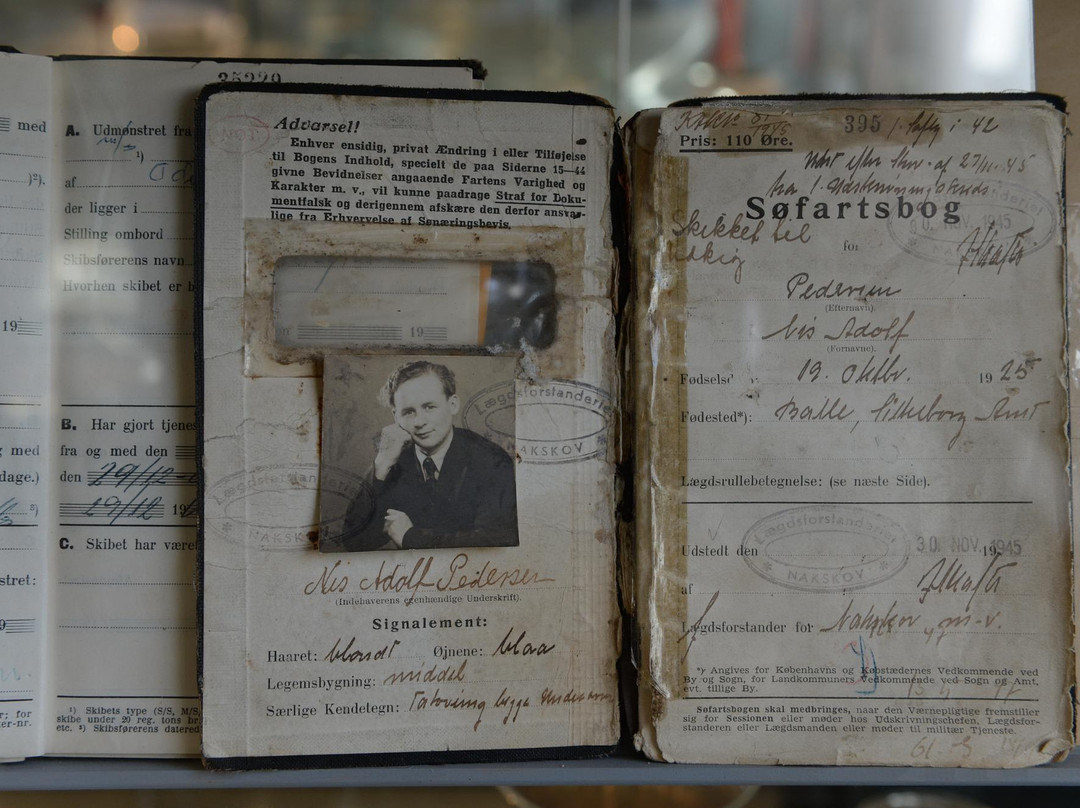 35229
med
A. Udmønstret fra
af
der ligger i
Stilling ombord
Skibsførerens navn
Hvorhen skibet er b
19
B. Har gjort tjenes
fra og med den
den 29/12
29/12 19
med
dage.)
C. Skibet har være
stret:
19
¹) Skibets type (S/S, M/S,
skibe under 20 reg. tons br.
etc. ²) Skibsførerens datered
Advarsel!
Enhver ensidig, privat Ændring i eller Tilføjelse
til Bogens Indhold, specielt de paa Siderne 15—44
givne Bevidnelser angaaende Fartens Varighed og
Karakter m. v., vil kunne paadrage Straf for Doku-
mentfalsk og derigennem afskære den derfor ansvar-
lige fra Erhvervelse af Sønæringsbevis.
19
Lægdsforstanderiet
NAKSKOV
Lægdsforstanderiet
NAKSKOV
Nis Adolf Pedersen
(Indehaverens egenhændige Underskrift).
Signalement:
Haaret: blondt Øjnene: blaa
Legemsbygning: middel
Særlige Kendetegn: Tatovering begge Underarm
395
Pris: 110 Øre.
Søfartsbog
Skikket til
udkig
for
30. NOV. 1945
Pedersen
(Efternavn).
Nis Adolf
(Fornavne).
Fødselsd 19. Oktbr. 1925
Fødested*): Balle, Silkeborg Amt
Lægdsrullebetegnelse: (se næste Side).
Lægdsforstanderiet
NAKSKOV
Udstedt den 30. NOV. 1945
af
Lægdsforstander for Nakskov m.v.
*) Angives for Københavns og Købstædernes Vedkommende ved
By og Sogn, for Landkommuners Vedkommende ved Sogn og Amt,
evt. tillige By.
Søfartsbogen skal medbringes, naar den Værnepligtige fremstiller
sig for Sessionen eller møder hos Udskrivningschefen, Lægdsfor-
standeren eller Lægdsmanden eller møder til militær Tjeneste.